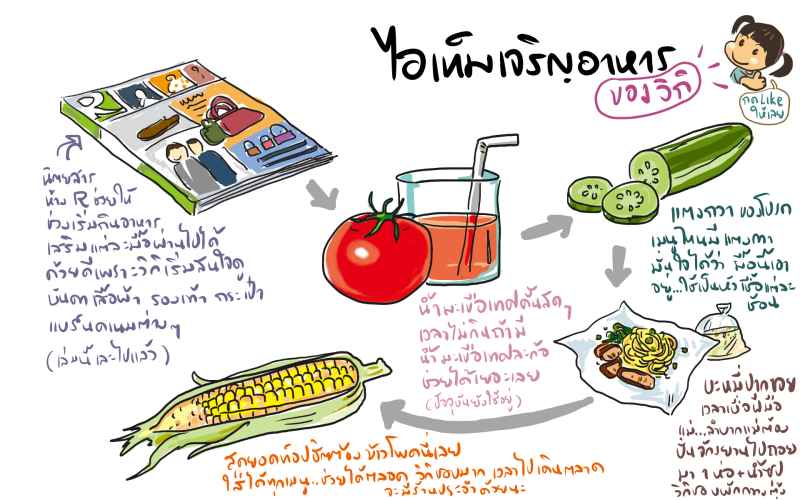 ไอเท็มเจริญอาหาร
ของวิกิ
กด Like
ให้เลย
นิตยสาร
ห้าง R ช่วยให้
ช่วงเริ่มกินอาหาร
เสริมแต่ละมื้อผ่านไปได้
ด้วยดีเพราะวิกิเริ่มสนใจดู
บันดาเสื้อผ้า รองเท้า กระเป๋า
แบร์นดเนมต่างๆ
(เล่มนี้เละไปแล้ว)
น้ำมะเขือเทศคั้นสดๆ
เวลาไม่กินถ้ามี
น้ำมะเขือเทศละก้อ
ช่วยได้เยอะเลย
(ปัจจุบันยังใช้อยู่)
แตงกวา ของโปรด
เมนูไหนมีแตงกวา
มั่นใจได้ว่า มื้อนี้เอา
อยู่...ใช้เป็นหัวเชื้อแต่ละ
ช้อน
บะหมี่ปากซอย
เวลาเบื่อฝีมือ
แม่...ลำบากแม่ต้อง
ปั่นจักรยานไปถอย
มา 1 ห่อ + น้ำซุป
สุดยอดท้อปฮิตต้อง ข้าวโพดนี่เลย
ใส่ได้ทุกเมนู...ช่วยได้ตลอด วิกิชอบมาก เวลาไปเดินตลาด
จะมีร้านประจำด้วยนะ